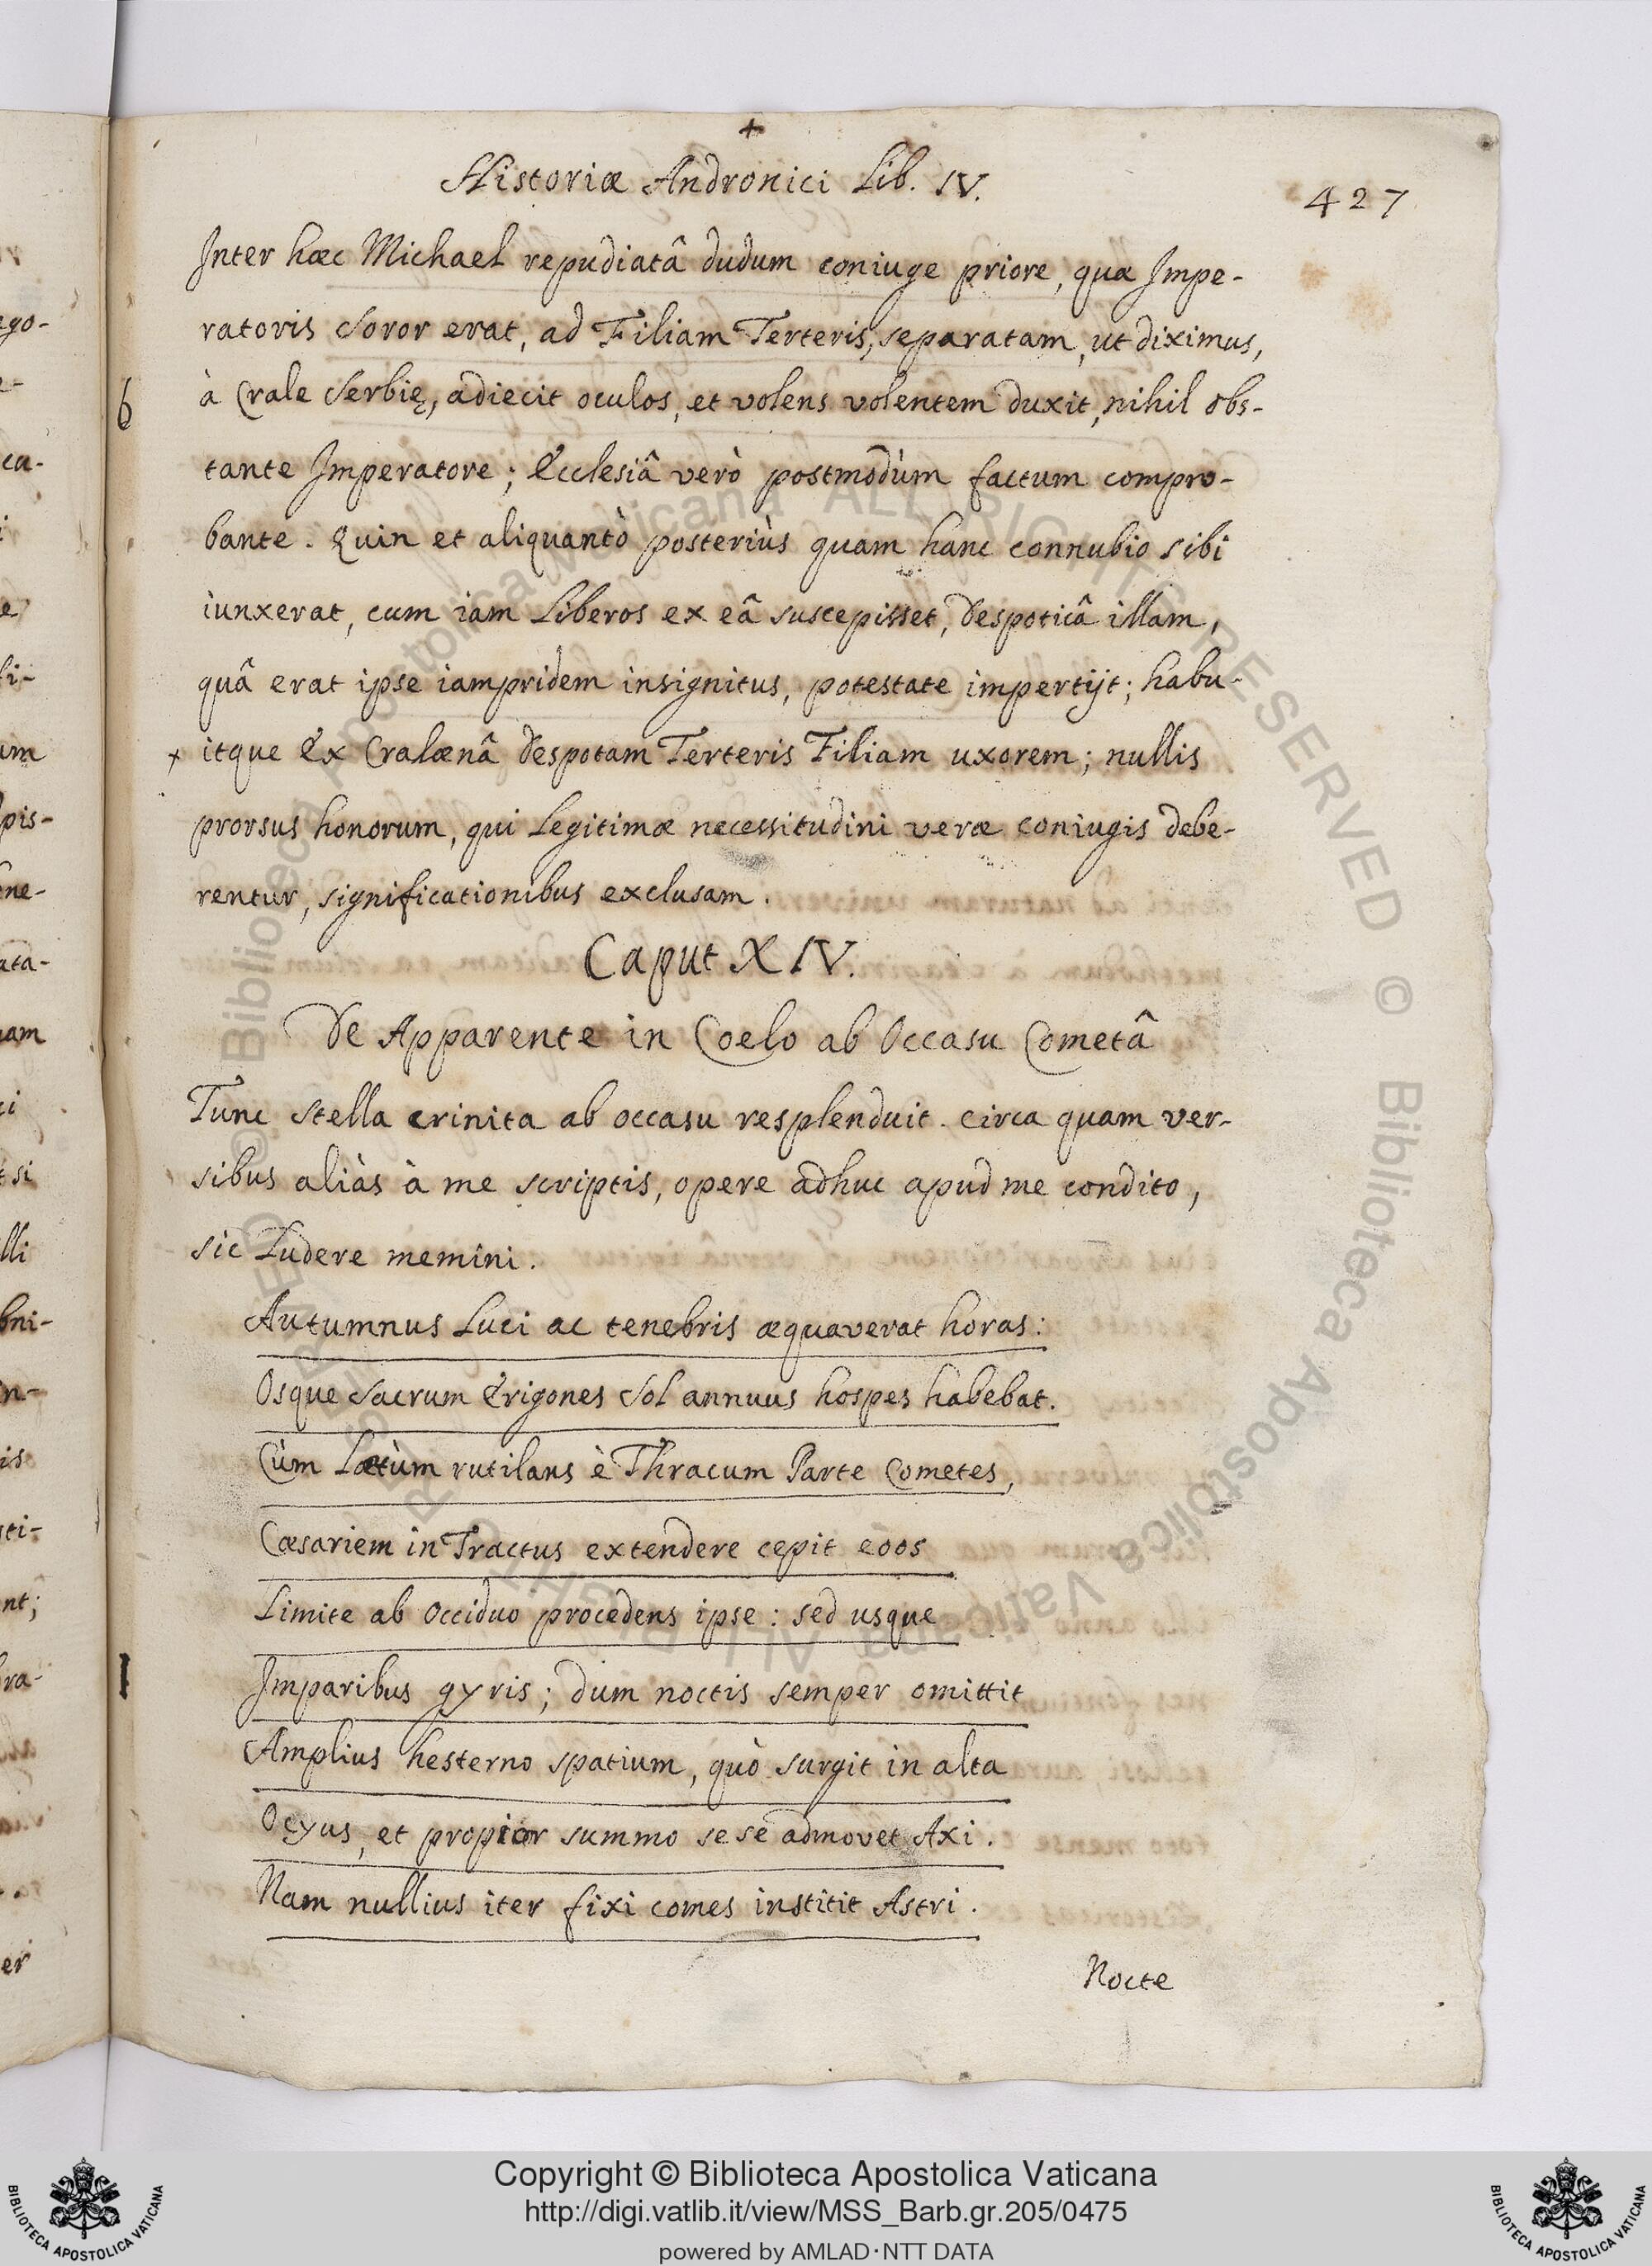 +
Historiæ Andronici Lib. IV.
427
Inter hæc Michael repudiatâ dudum coniuge priore, quæ Impe-
ratoris Soror erat, ad Filiam Terteris, separatam, ut diximus,
6
à Crale Serbię, adiecit oculos, et volens volentem duxit, nihil obs-
tante Imperatore; Ecclesiâ verò postmodùm factum compro-
bante. Quin et aliquantò posteriùs quam hanc connubio sibi
iunxerat, cum iam Liberos ex eâ suscepisset, Despoticâ illam,
quâ erat ipse iampridem insignitus, potestate impertijt; habu-
+ itque Ex Cralænâ Despotam Terteris Filiam uxorem; nullis
prorsus honorum, qui Legitimæ necessitudini veræ coniugis debe-
rentur, significationibus exclusam.
Caput XIV.
De Apparente in Coelo ab Occasu Cometâ
Tunc Stella crinita ab occasu resplenduit. circa quam ver-
sibus aliàs à me scriptis, opere adhuc apud me condito,
sic Ludere memini.
Autumnus Luci ac tenebris æquaverat horas:
Osque Sacrum Erigones Sol annuus hospes habebat.
Cùm Lætùm rutilans è Thracum Parte Cometes,
Cæsariem in Tractus extendere cepit eòos
Limite ab Occiduo procedens ipse: sed usque
Imparibus gyris; dum noctis semper omittit
Amplius hesterno spatium, quò surgit in alta
Ocyus, et propior summo sese admovet Axi.
Nam nullius iter fixi comes institit Astri.
Nocte
ego-
ca-
e
fi-
um
pis-
ne-
ata-
uam
ci
tsi
lli
bni-
in-
is
sti-
nt;
bra-
er
© Biblioteca Apostolica Vaticana ALL RIGHTS RESERVED © Biblioteca Apostolica Vaticana ALL RIGHTS RESERVED
BIBLIOTECA APOSTOLICA VATICANA
Copyright © Biblioteca Apostolica Vaticana
http://digi.vatlib.it/view/MSS_Barb.gr.205/0475
powered by AMLAD·NTT DATA
BIBLIOTECA APOSTOLICA VATICANA